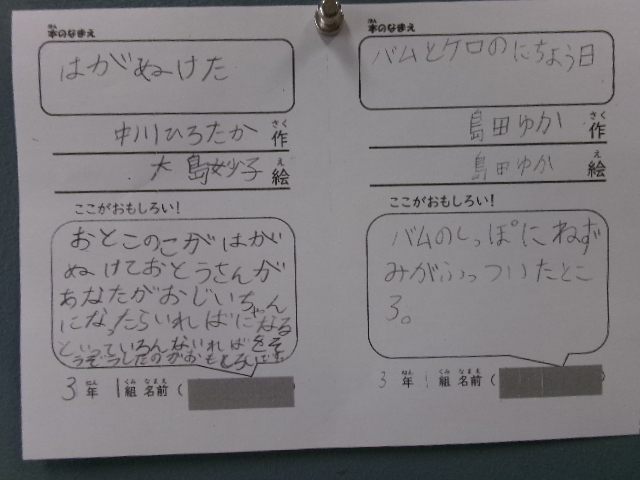 本のなまえ
はがぬけた
中川ひろたか 作
大島妙子 絵
ここがおもしろい!
おとこのこがはが
ぬけておとうさんが
あなたがおじいちゃん
になったらいればになる
といっていろんないればをそ
うぞうしたのがおもしろいです
3年 1組 名前(
本のなまえ
バムとケロのにちよう日
島田ゆか 作
島田ゆか 絵
ここがおもしろい!
バムのしっぽにねず
みがふっついたとこ
ろ。
3年 1組 名前(